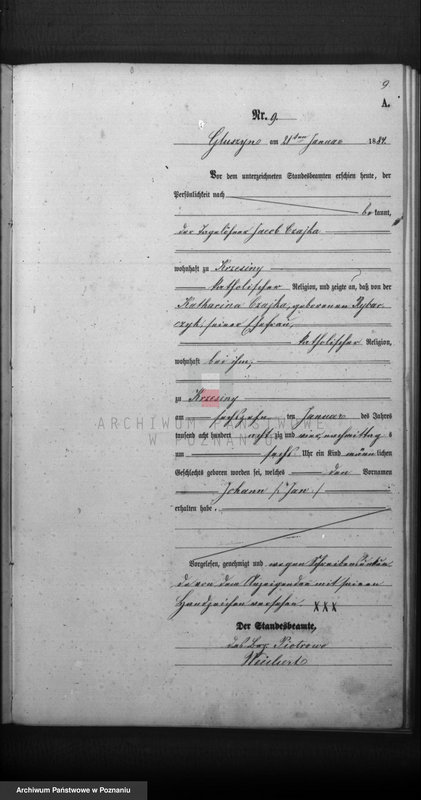 9
A.
Nr. 9.
Gluszyn am 21ten Januar 1884.
Vor dem unterzeichneten Standesbeamten erschien heute, der
Persönlichkeit nach
be kannt,
der Tagelöhner Jacob Czajka
wohnhaft zu Krzesiny
katholischer Religion, und zeigte an, daß von der
Katharina Czajka, geborenen Rybar-
czyk, seiner Ehefrau,
katholischer Religion,
wohnhaft bei ihm,
zu Krzesiny
am sechszehn ten Januar des Jahres
tausend acht hundert acht zig und vier, nachmittag s
um sechs Uhr ein Kind männ lichen
Geschlechts geboren worden sei, welches den Vornamen
Johann /: Jan :/
erhalten habe.
Vorgelesen, genehmigt und wegen Schreibensunkun-
de von dem Anzeigenden mit seinem
Handzeichen versehen. XXX
Der Standesbeamte,
Piotrowo
Weichert
ARCHIWUM PAŃSTWOWE
W POZNANIU
Archiwum Państwowe w Poznaniu